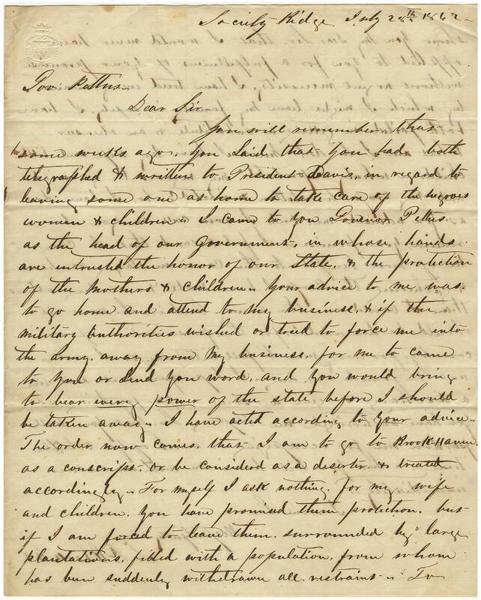 Society Ridge July 28th 1862
Gov Pettus
Dear Sir
You will remember that
some weeks ago, You Said that You had both
telegraphed & written to President Davis, in regard to
leaving some one at home to take care of the negroes
women & children - I came to You Govenor Pettus
as the head of our Government, in whose hands
are entrusted the honor of our State, & the protection
of the Mothers & Children. Your advice to me was
to go home and attend to my business, & if the
military authorities wished or tried to force me into
the army, away from my business, for me to come
to You or Send You word, and You would bring
to bear every power of the state before I should
be taken away - I have acted according to Your advice -
The order now comes, that I am to go to Brook Haven
as a conscript, or be considered as a deserter & treated
accordingly - For myself I ask nothing, for my wife
and children, You have promised them protection, but
if I am forced to leave them, surrounded by large
plantations, filled with a population, from whom
has been suddenly withdrawn all restraint - To